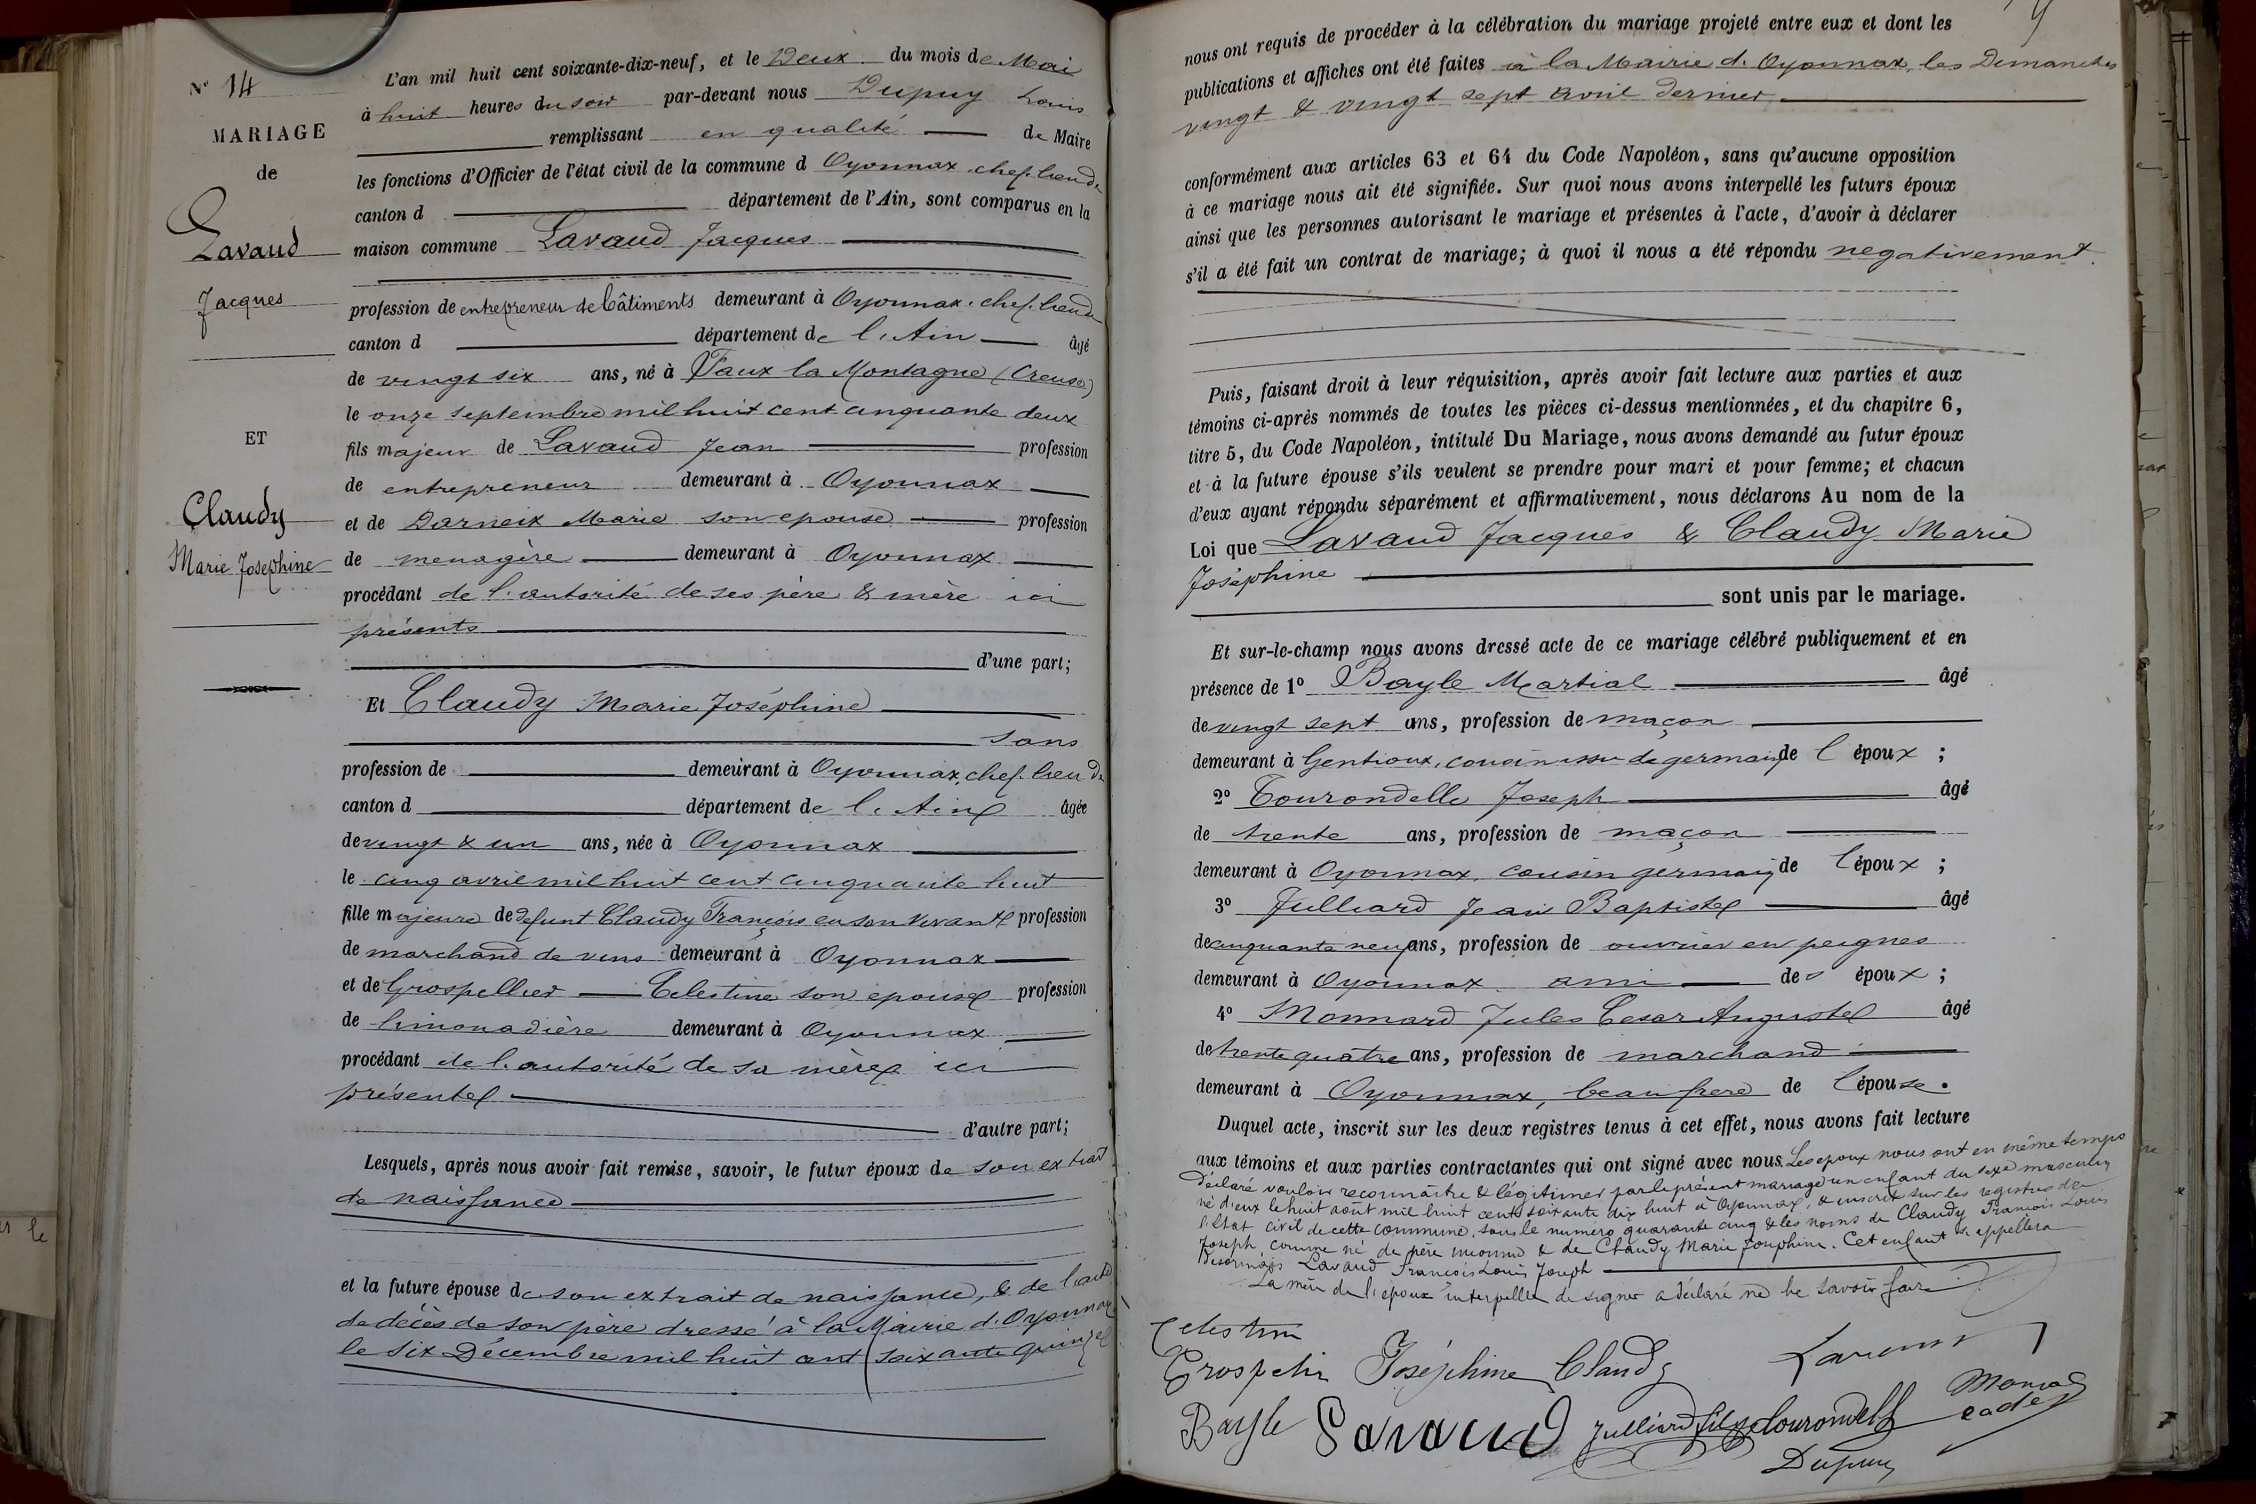 N° 14
MARIAGE
de
Lavaud
Jacques
ET
Claudy
Marie Josephine
L'an mil huit cent soixante-dix-neuf, et le Deux du mois de Mai
à huit heures du soir par-devant nous Dupuy Louis
remplissant en qualité de Maire
les fonctions d'Officier de l'état civil de la commune d Oyonnax, chef-lieu de
canton d département de l'Ain, sont comparus en la
maison commune Lavaud Jacques
profession de entrepreneur de bâtiments demeurant à Oyonnax, chef-lieu de
canton d département de l'Ain âgé
de vingt six ans, né à Faux la Montagne (Creuse)
le onze septembre mil huit cent cinquante deux
fils majeur de Lavaud Jean profession
de entrepreneur demeurant à Oyonnax
et de Darneix Marie son epouse profession
de menagère demeurant à Oyonnax
procédant de l'autorité de ses père & mère ici
présents
d'une part;
Et Claudy Marie Joséphine
sans
profession de demeurant à Oyonnax, chef-lieu de
canton d département de l'Ain âgée
de vingt & un ans, née à Oyonnax
le cinq avril mil huit cent cinquante huit
fille majeure de defunt Claudy François en son vivant profession
de marchand de vins demeurant à Oyonnax
et de Grospellier Celestine son epouse profession
de limonadière demeurant à Oyonnax
procédant de l'autorité de sa mère ici
présente
d'autre part;
Lesquels, après nous avoir fait remise, savoir, le futur époux de son extrait
de naissance
et la future épouse de son extrait de naissance, & de l'acte
de décès de son père dressé à la Mairie d'Oyonnax
le six Décembre mil huit cent soixante quinze
nous ont requis de procéder à la célébration du mariage projeté entre eux et dont les
publications et affiches ont été faites à la Mairie d'Oyonnax, les Dimanches
vingt & vingt sept avril dernier
conformément aux articles 63 et 64 du Code Napoléon, sans qu'aucune opposition
à ce mariage nous ait été signifiée. Sur quoi nous avons interpellé les futurs époux
ainsi que les personnes autorisant le mariage et présentes à l'acte, d'avoir à déclarer
s'il a été fait un contrat de mariage; à quoi il nous a été répondu negativement.
Puis, faisant droit à leur réquisition, après avoir fait lecture aux parties et aux
témoins ci-après nommés de toutes les pièces ci-dessus mentionnées, et du chapitre 6,
titre 5, du Code Napoléon, intitulé Du Mariage, nous avons demandé au futur époux
et à la future épouse s'ils veulent se prendre pour mari et pour femme; et chacun
d'eux ayant répondu séparément et affirmativement, nous déclarons Au nom de la
Loi que Lavaud Jacques & Claudy Marie
Joséphine
sont unis par le mariage.
Et sur-le-champ nous avons dressé acte de ce mariage célébré publiquement et en
présence de 1° Bayle Martial âgé
de vingt sept ans, profession de maçon
demeurant à Gentioux, cousin issu de germain de l'époux;
2° Tourondelle Joseph âgé
de trente ans, profession de maçon
demeurant à Oyonnax, cousin germain de l'époux;
3° Julliard Jean Baptiste âgé
de cinquante neuf ans, profession de ouvrier en peignes
demeurant à Oyonnax ami des époux;
4° Monnard Jules Cesar Auguste âgé
de trente quatre ans, profession de marchand
demeurant à Oyonnax, beau frere de l'épouse.
Duquel acte, inscrit sur les deux registres tenus à cet effet, nous avons fait lecture
aux témoins et aux parties contractantes qui ont signé avec nous. Les epoux nous ont en même temps
déclaré vouloir reconnaître & légitimer par le présent mariage un enfant du sexe masculin
né d'eux le huit août mil huit cent soixante dix huit à Oyonnax, & inscrit sur les registres de
l'Etat civil de cette commune, sous le numéro quarante cinq & les noms de Claudy François Louis
Joseph, comme né de père inconnu & de Claudy Marie Josephine. Cet enfant s'appellera
Desormais Lavaud François Louis Joseph
La mère de l'époux interpellée de signer a déclaré ne le savoir faire
Celestine
Grospelier Joséphine Claudy Lavaud
Monnard
cadet
Bayle Lavaud Julliard fils Tourondelle
Dupuy